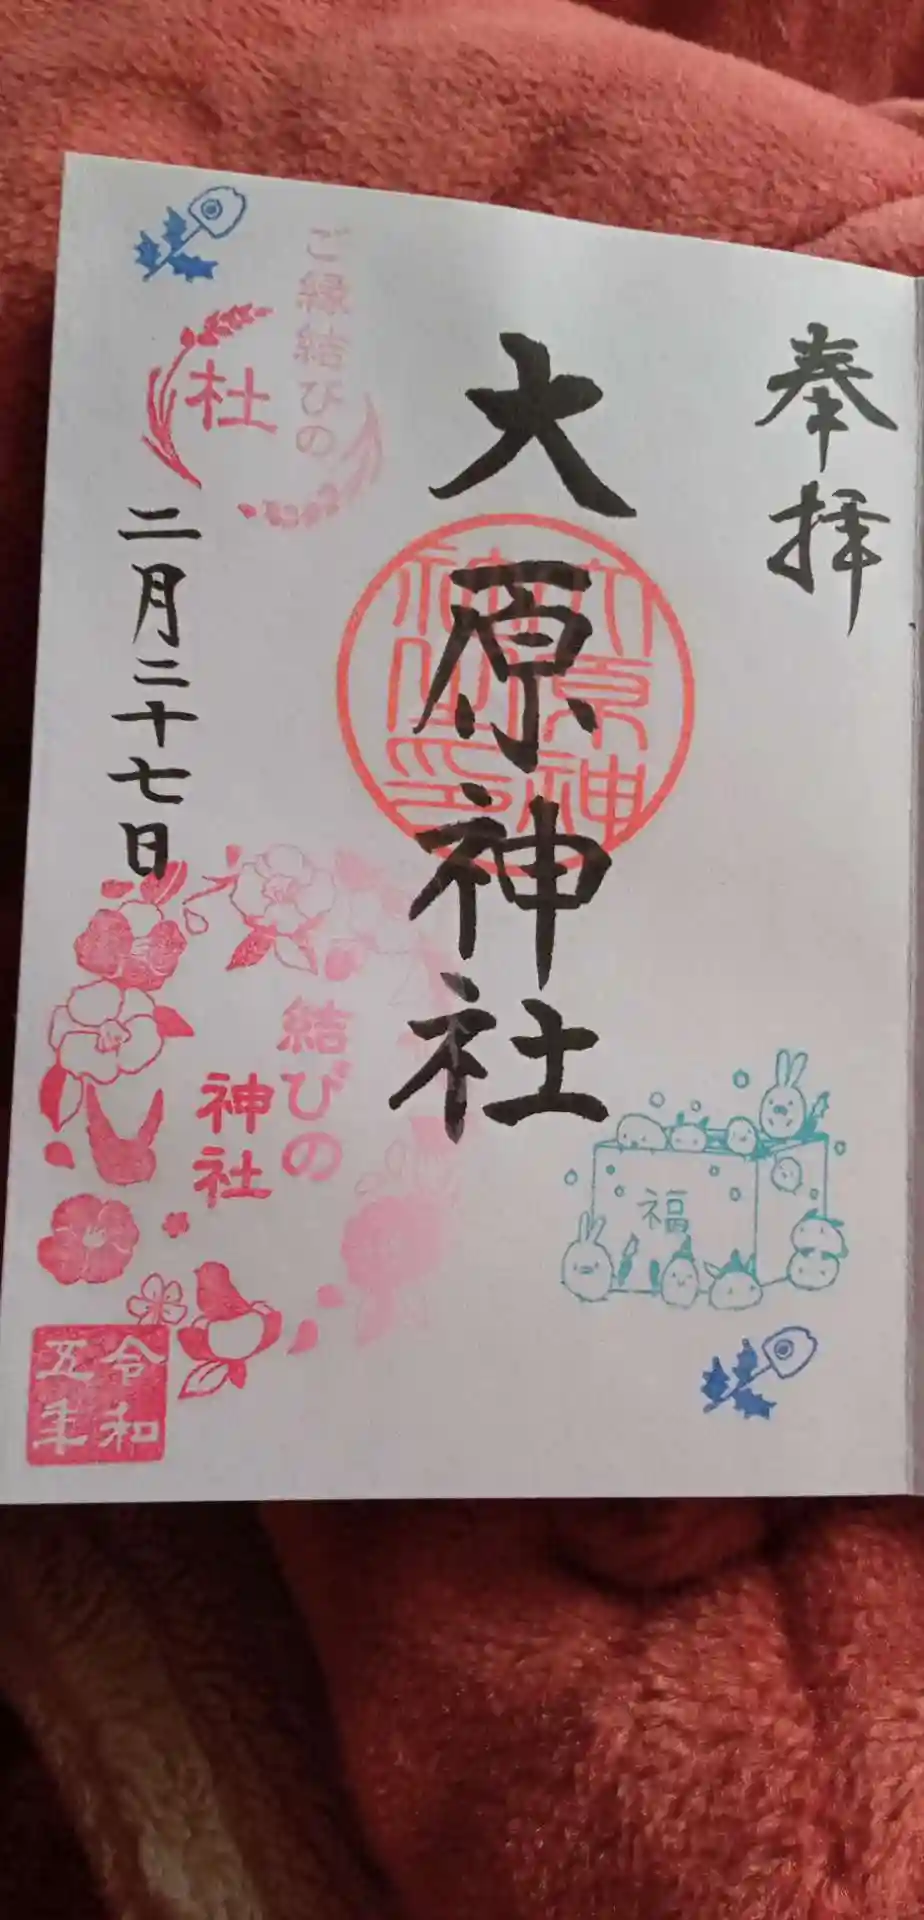 奉拝
大原神社
大原神
社之印
福
ご縁結びの
杜
二月二十七日
結びの
神社
令和
五年